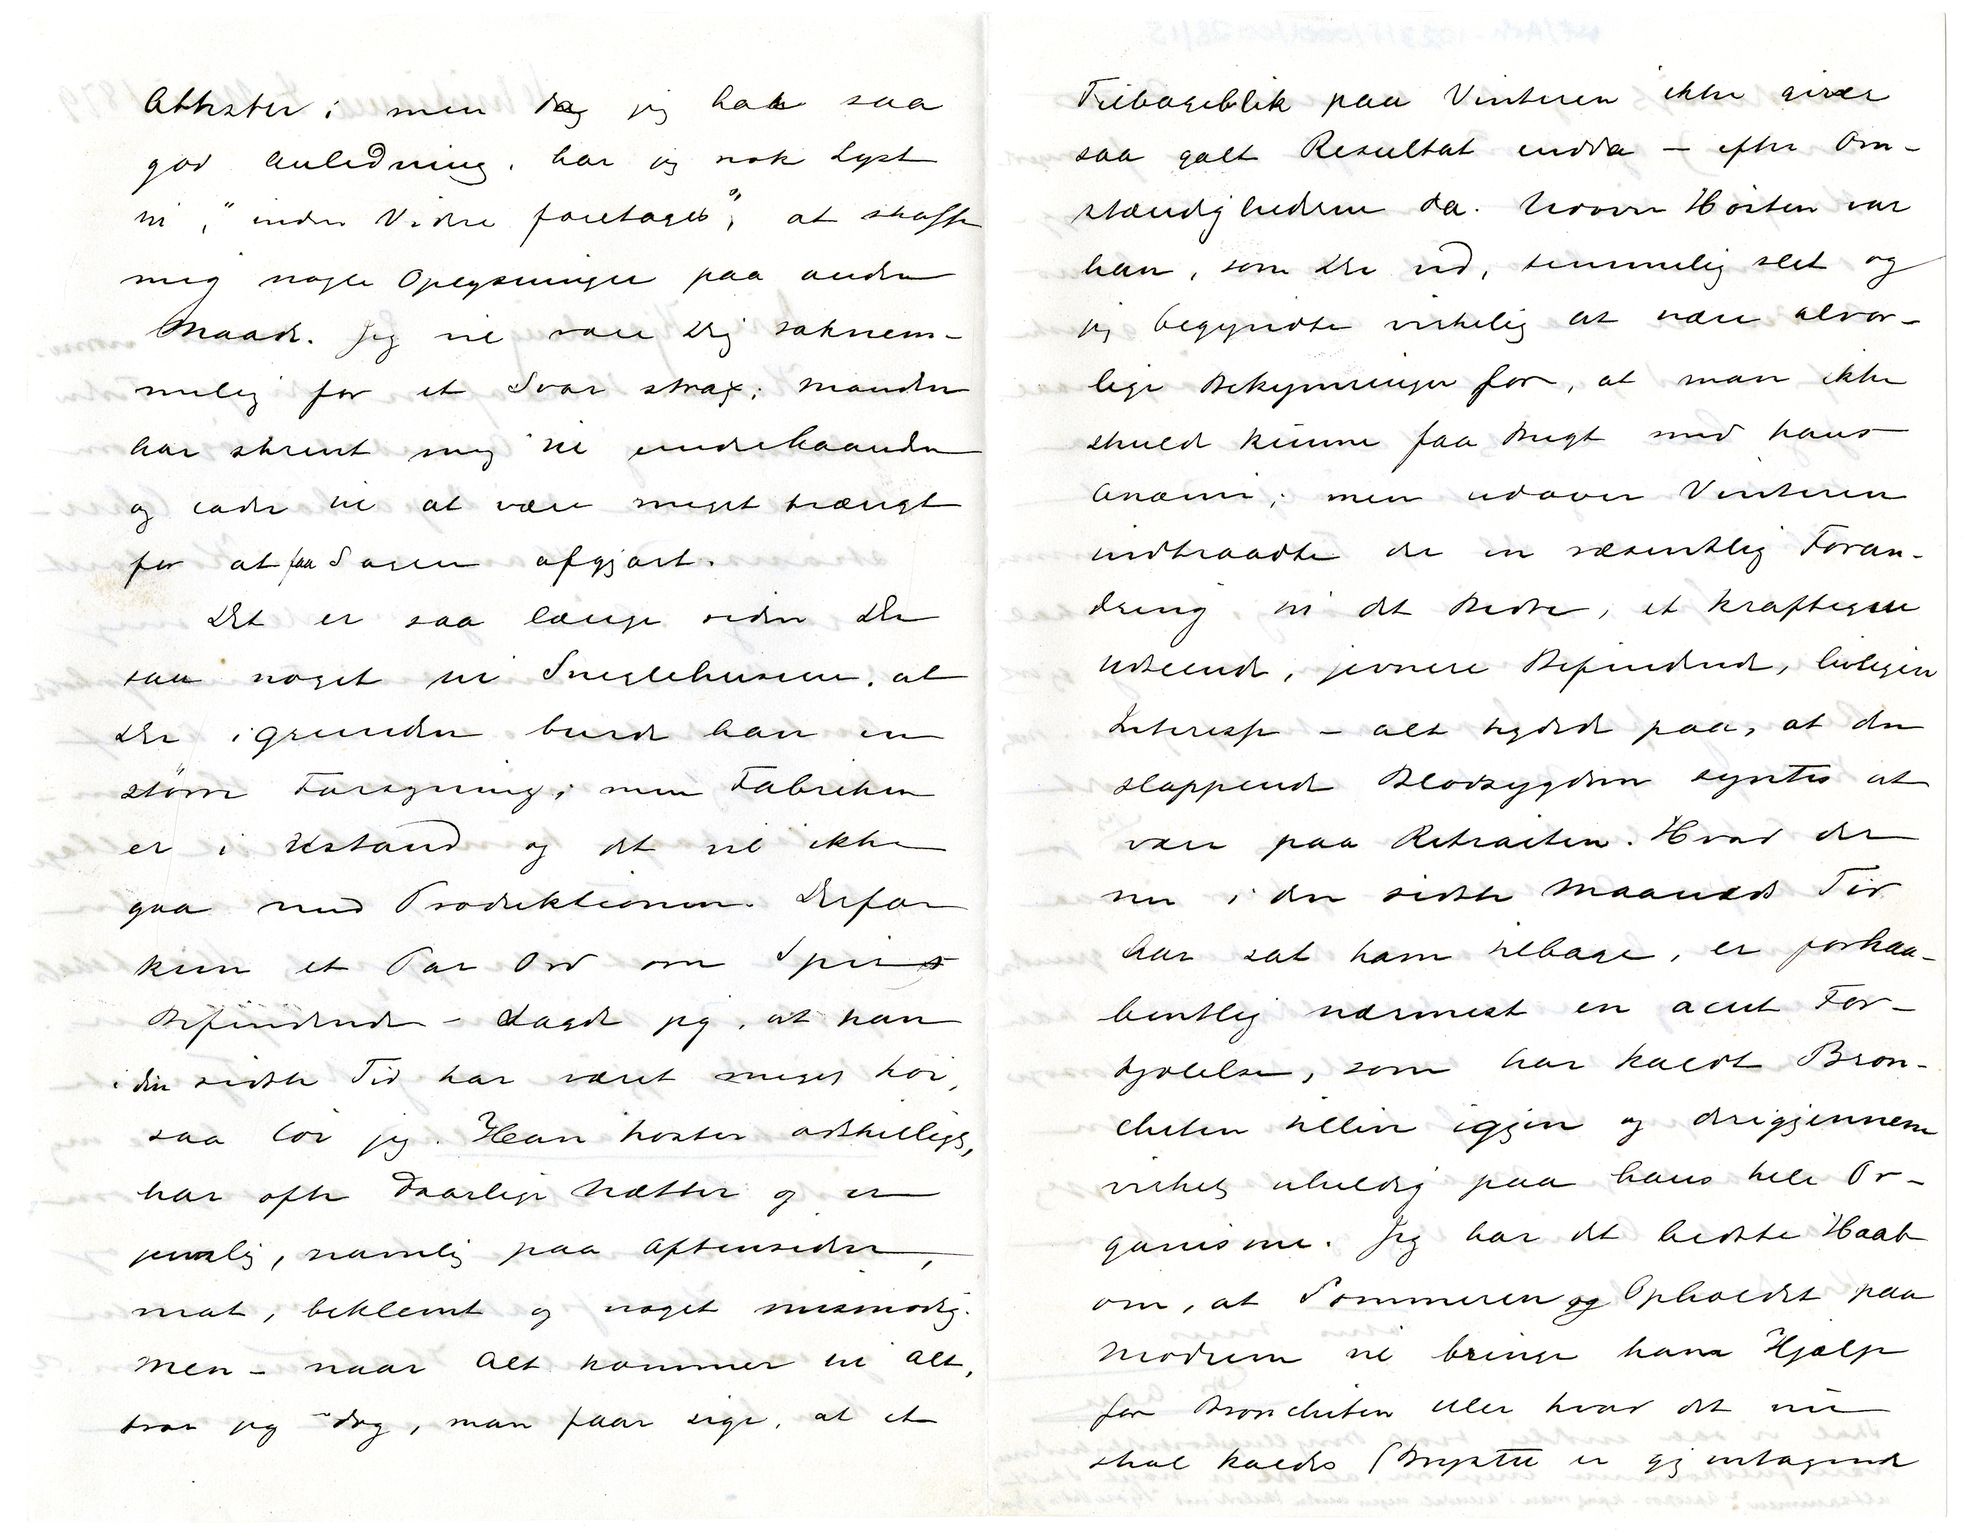 Attester; men da jeg har saa
god Anledning, har jeg nok Lyst
til, "inden Videre foretages", at skaffe
mig nogle Oplysninger paa anden
Maade. Jeg vil være Dig taknem-
melig for et Svar strax; Manden
har skrevet mig til underhaanden
og lader til at være meget trængt
for at faa Sagen afgjort.
Det er saa længe siden De
saa noget til Sneglehusene, at
De igrunden burde have en
større Forsyning; men Fabriken
er i Ustand og det vil ikke
gaa med Produktionen. Derfor
kun et Par Ord om
Befindende – Sagde jeg, at han
i den sidste Tid har været meget
saa løi jeg. Han hoster adskilligt,
har ofte daarlige Nætter og er
jevnlig, navnlig paa Aftensiden,
mat, beklemt og noget mismodig.
Men – naar Alt kommer til Alt,
tror jeg dog, man faar sige, at et
Tilbageblik paa Vinteren ikke giver
saa galt Resultat endda – efter Om-
stændighederne da. Udover Høsten var
han, som De ved, temmelig slet og
jeg begyndte virkelig at nære alvor-
lige Bekymringer for, at man ikke
skulde kunne faa Bugt med hans
Anæmi; men udover Vinteren
indtraadte der en væsentlig Foran-
dring til det Bedre, et kraftigere
Udseende, jevnere Befindende, livligere
Interesse – alt tydede paa, at den
slappende Blodsygdom syntes at
være paa Retraiten. Hvad der
nu i den sidste Maaneds Tid
har sat ham tilbage, er forhaa-
bentlig nærmest en acut For-
kjølelse, som har kaldt Bron-
chiten tillive igjen og derigjennem
virket uheldig paa hans hele Or-
ganisme. Jeg har det bedste Haab
om, at Sommeren og Opholdet paa
Modum vil bringe ham Hjælp
for Bronchiten eller hvad det nu
skal kaldes (Brystet er gjentagende